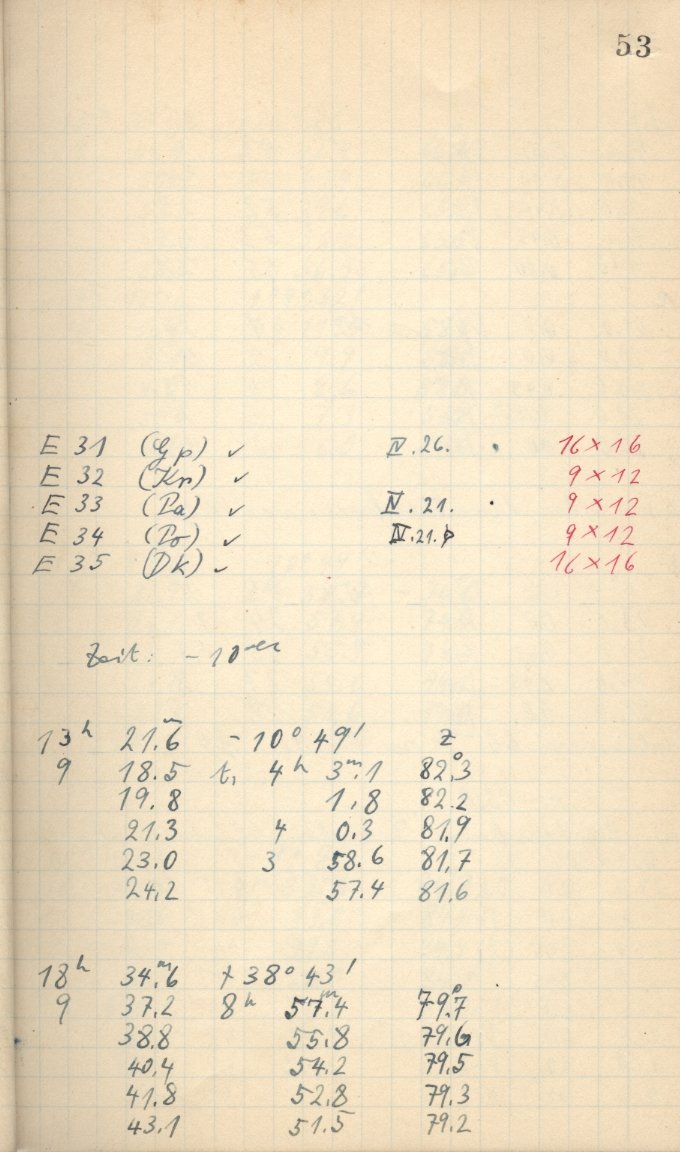 53
E 31 (Gp) ✓ IV.26. 16×16
E 32 (Kr) ✓ 9×12
E 33 (Pa) ✓ IV.21. 9×12
E 34 (Po) ✓ IV.21. 9×12
E 35 (Dk) ✓ 16×16
Zeit: -10
13ʰ 21ᵐ.6 -10° 49' z
9 18.5 t, 4ʰ 3ᵐ.1 82°.3
19.8 1.8 82.2
21.3 4 0.3 81.9
23.0 3 58.6 81.7
24.2 57.4 81.6
18ʰ 34ᵐ.6 +38° 43'
9 37.2 8ʰ 57ᵐ.4 79°.7
38.8 55.8 79.6
40.4 54.2 79.5
41.8 52.8 79.3
43.1 51.5 79.2